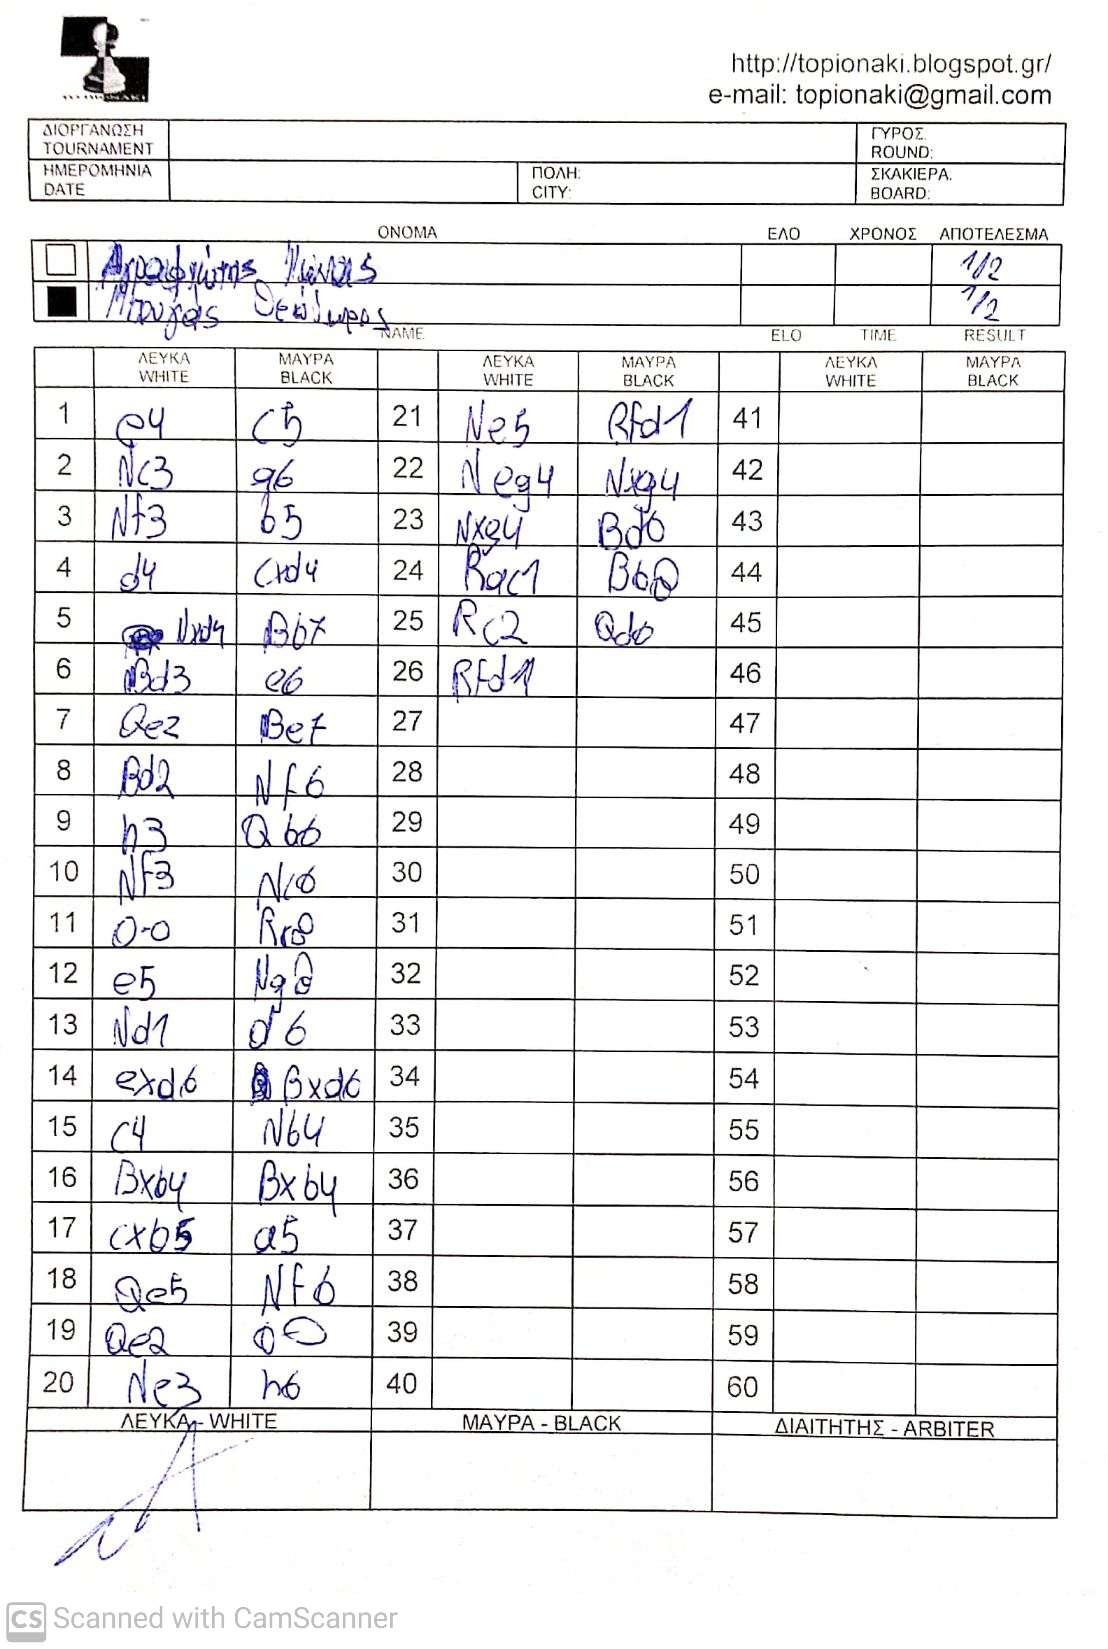 http://topionaki.blogspot.gr/
e-mail: topionaki@gmail.com
ΔΙΟΡΓΑΝΩΣΗ
TOURNAMENT
ΓΥΡΟΣ.
ROUND:
ΗΜΕΡΟΜΗΝΙΑ
DATE
ΠΟΛΗ:
CITY:
ΣΚΑΚΙΕΡΑ.
BOARD:
ΟΝΟΜΑ ΕΛΟ ΧΡΟΝΟΣ ΑΠΟΤΕΛΕΣΜΑ
1/2
Θεόδωρος 1/2
NAME ELO TIME RESULT
ΛΕΥΚΑ ΜΑΥΡΑ ΛΕΥΚΑ ΜΑΥΡΑ ΛΕΥΚΑ ΜΑΥΡΑ
WHITE BLACK WHITE BLACK WHITE BLACK
1 e4 c5 21 Ne5 Rfd1 41
2 Nc3 g6 22 Neg4 Nxg4 42
3 Nf3 b5 23 Nxg4 Bd6 43
4 d4 cxd4 24 Rac1 Bb8 44
5 Nxd4 Bb7 25 Rc2 Qd6 45
6 Bd3 e6 26 Rfd1 46
7 Qe2 Be7 27 47
8 Bd2 Nf6 28 48
9 h3 Qb6 29 49
10 Nf3 Nc6 30 50
11 0-0 Rc8 31 51
12 e5 Ng8 32 52
13 Nd1 d6 33 53
14 exd6 Bxd6 34 54
15 c4 Nb4 35 55
16 Bxb4 Bxb4 36 56
17 cxb5 a5 37 57
18 Qe5 Nf6 38 58
19 Qe2 0-0 39 59
20 Ne3 h6 40 60
ΛΕΥΚΑ - WHITE ΜΑΥΡΑ - BLACK ΔΙΑΙΤΗΤΗΣ - ARBITER
CS Scanned with CamScanner